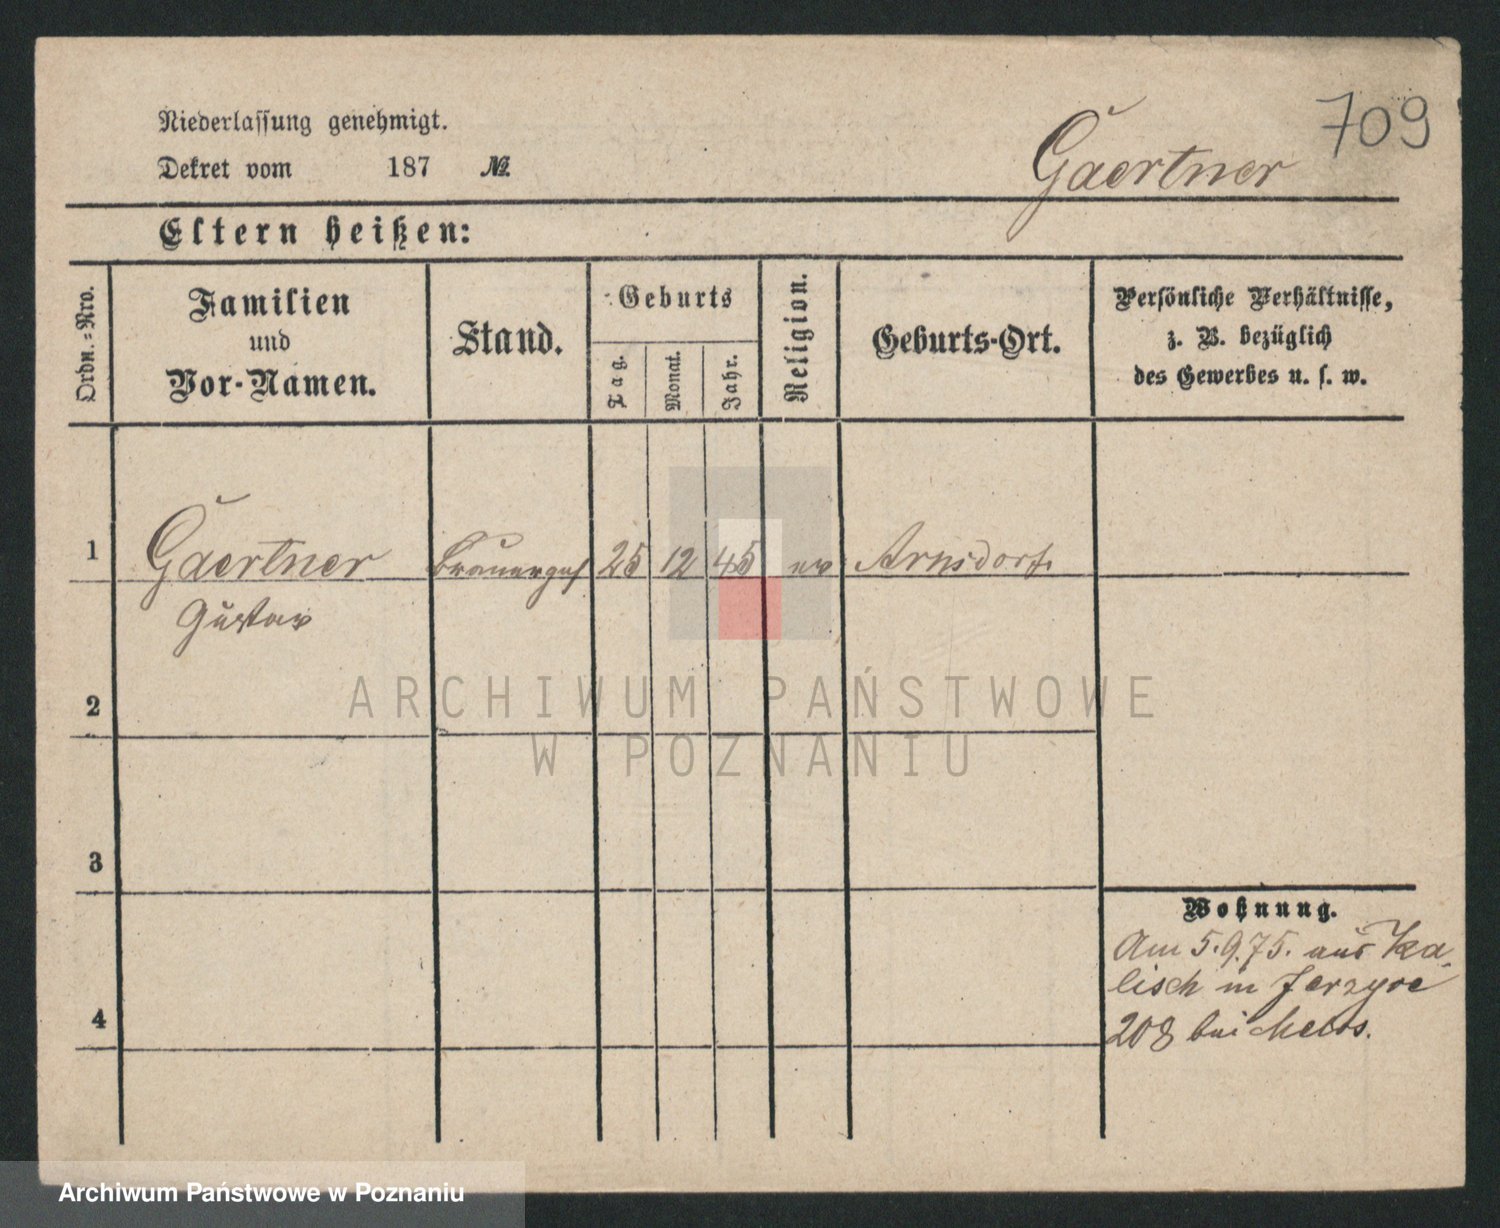 709
Niederlassung genehmigt.
Dekret vom 187 №
Gaertner
Eltern heißen:
Ordn.=Nro.
Familien
und
Vor-Namen.
Stand.
Geburts
Tag.
Monat.
Jahr.
Religion.
Geburts-Ort.
Persönliche Verhältnisse,
z. B. bezüglich
des Gewerbes u. s. w.
1 Gaertner Brauergeh 25 12 45 ev Arnsdorf
Gustav
2
ARCHIWUM PAŃSTWOWE
W POZNANIU
3
4
Wohnung.
Am 5.9.75. aus Ka-
lisch in Jerzyce
208 bei
Archiwum Państwowe w Poznaniu